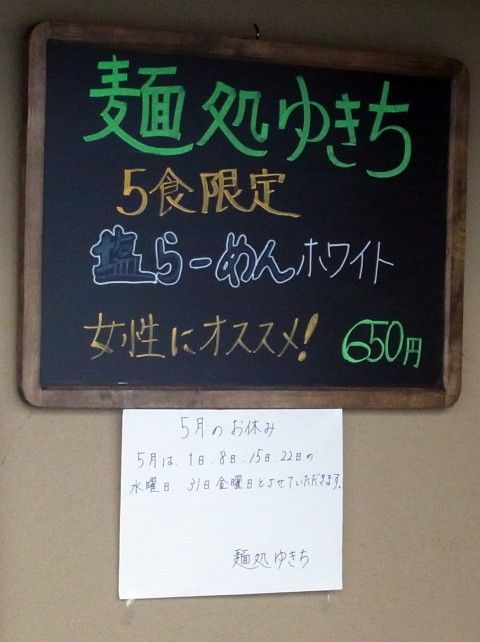 麺処ゆきち
5食限定
塩らーめんホワイト
女性にオススメ!
650円
5月のお休み
5月は、1日、8日、15日、22日の
水曜日、31日金曜日とさせていただきます。
麺処ゆきち